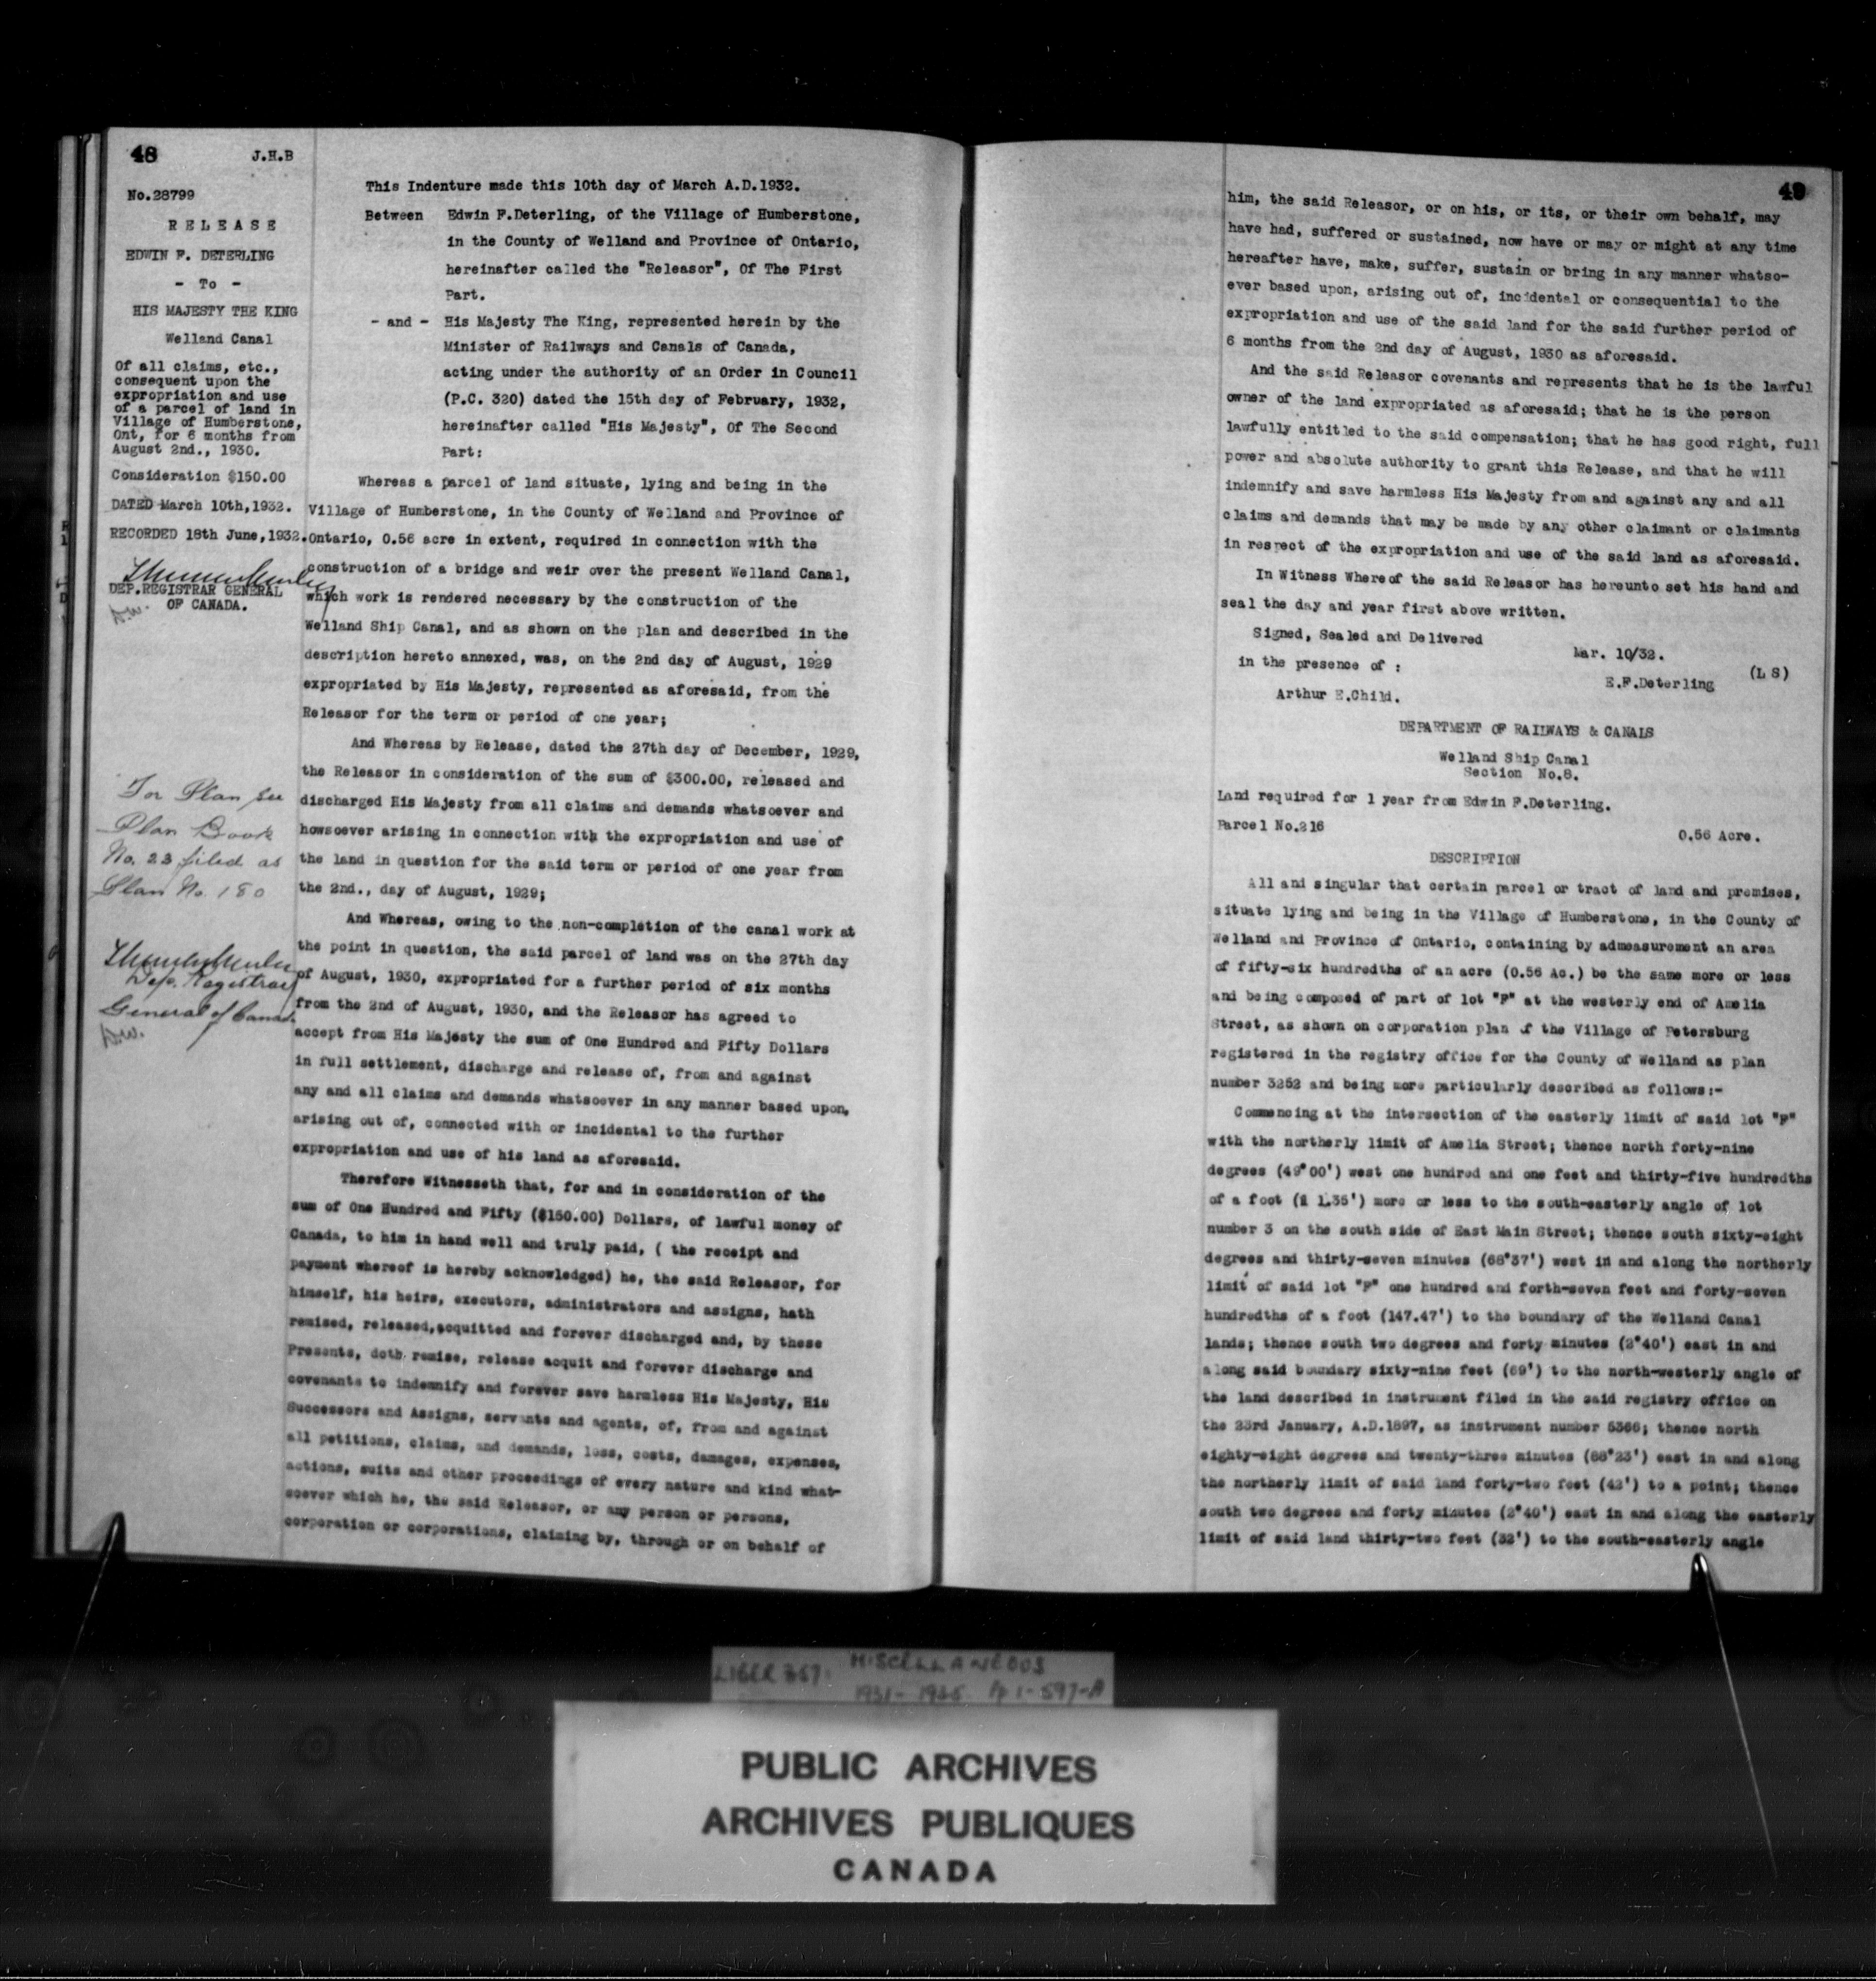 48
J.H.B
No.28799
RELEASE
EDWIN F. DETERLING
- To -
HIS MAJESTY THE KING
Welland Canal
Of all claims, etc.,
consequent upon the
expropriation and use
of a parcel of land in
Village of Humberstone,
Ont, for 6 months from
August 2nd., 1930.
Consideration $150.00
DATED March 10th,1932.
RECORDED 18th June,1932.
DEP.REGISTRAR GENERAL
OF CANADA.
For Plan see
Plan Book
No. 23 filed as
Plan No. 180
Dep. Registrar
General of Canada
This Indenture made this 10th day of March A.D.1932.
Between Edwin F.Deterling, of the Village of Humberstone,
in the County of Welland and Province of Ontario,
hereinafter called the "Releasor", Of The First
Part.
- and - His Majesty The King, represented herein by the
Minister of Railways and Canals of Canada,
acting under the authority of an Order in Council
(P.C. 320) dated the 15th day of February, 1932,
hereinafter called "His Majesty", Of The Second
Part:
Whereas a parcel of land situate, lying and being in the
Village of Humberstone, in the County of Welland and Province of
Ontario, 0.56 acre in extent, required in connection with the
construction of a bridge and weir over the present Welland Canal,
which work is rendered necessary by the construction of the
Welland Ship Canal, and as shown on the plan and described in the
description hereto annexed, was, on the 2nd day of August, 1929
expropriated by His Majesty, represented as aforesaid, from the
Releasor for the term or period of one year;
And Whereas by Release, dated the 27th day of December, 1929,
the Releasor in consideration of the sum of $300.00, released and
discharged His Majesty from all claims and demands whatsoever and
howsoever arising in connection with the expropriation and use of
the land in question for the said term or period of one year from
the 2nd., day of August, 1929;
And Whereas, owing to the non-completion of the canal work at
the point in question, the said parcel of land was on the 27th day
of August, 1930, expropriated for a further period of six months
from the 2nd of August, 1930, and the Releasor has agreed to
accept from His Majesty the sum of One Hundred and Fifty Dollars
in full settlement, discharge and release of, from and against
any and all claims and demands whatsoever in any manner based upon,
arising out of, connected with or incidental to the further
expropriation and use of his land as aforesaid.
Therefore Witnesseth that, for and in consideration of the
sum of One Hundred and Fifty ($150.00) Dollars, of lawful money of
Canada, to him in hand well and truly paid, ( the receipt and
payment whereof is hereby acknowledged) he, the said Releasor, for
himself, his heirs, executors, administrators and assigns, hath
remised, released,acquitted and forever discharged and, by these
Presents, doth remise, release acquit and forever discharge and
covenants to indemnify and forever save harmless His Majesty, His
Successors and Assigns, servants and agents, of, from and against
all petitions, claims, and demands, loss, costs, damages, expenses,
actions, suits and other proceedings of every nature and kind what-
soever which he, the said Releasor, or any person or persons,
corporation or corporations, claiming by, through or on behalf of
49
him, the said Releasor, or on his, or its, or their own behalf, may
have had, suffered or sustained, now have or may or might at any time
hereafter have, make, suffer, sustain or bring in any manner whatso-
ever based upon, arising out of, incidental or consequential to the
expropriation and use of the said land for the said further period of
6 months from the 2nd day of August, 1930 as aforesaid.
And the said Releasor covenants and represents that he is the lawful
owner of the land expropriated as aforesaid; that he is the person
lawfully entitled to the said compensation; that he has good right, full
power and absolute authority to grant this Release, and that he will
indemnify and save harmless His Majesty from and against any and all
claims and demands that may be made by any other claimant or claimants
in respect of the expropriation and use of the said land as aforesaid.
In Witness Whereof the said Releasor has hereunto set his hand and
seal the day and year first above written.
Signed, Sealed and Delivered
in the presence of :
Arthur E.Child.
Mar. 10/32.
E.F.Deterling
(L S)
DEPARTMENT OF RAILWAYS & CANALS
Welland Ship Canal
Section No.8.
Land required for 1 year from Edwin F.Deterling.
Parcel No.216
0.56 Acre.
DESCRIPTION
All and singular that certain parcel or tract of land and premises,
situate lying and being in the Village of Humberstone, in the County of
Welland and Province of Ontario, containing by admeasurement an area
of fifty-six hundredths of an acre (0.56 Ac.) be the same more or less
and being composed of part of lot "F" at the westerly end of Amelia
Street, as shown on corporation plan of the Village of Petersburg
registered in the registry office for the County of Welland as plan
number 3252 and being more particularly described as follows:-
Commencing at the intersection of the easterly limit of said lot "F"
with the northerly limit of Amelia Street; thence north forty-nine
degrees (49°00') west one hundred and one feet and thirty-five hundredths
of a foot (1 1.35') more or less to the south-easterly angle of lot
number 3 on the south side of East Main Street; thence south sixty-eight
degrees and thirty-seven minutes (68°37') west in and along the northerly
limit of said lot "F" one hundred and forth-seven feet and forty-seven
hundredths of a foot (147.47') to the boundary of the Welland Canal
lands; thence south two degrees and forty minutes (2°40') east in and
along said boundary sixty-nine feet (69') to the north-westerly angle of
the land described in instrument filed in the said registry office on
the 23rd January, A.D.1897, as instrument number 5366; thence north
eighty-eight degrees and twenty-three minutes (88°23') east in and along
the northerly limit of said land forty-two feet (42') to a point; thence
south two degrees and forty minutes (2°40') east in and along the easterly
limit of said land thirty-two feet (32') to the south-easterly angle
LIBER 367: MISCELLANEOUS
1931- 1935 Pp 1-597-A
PUBLIC ARCHIVES
ARCHIVES PUBLIQUES
CANADA